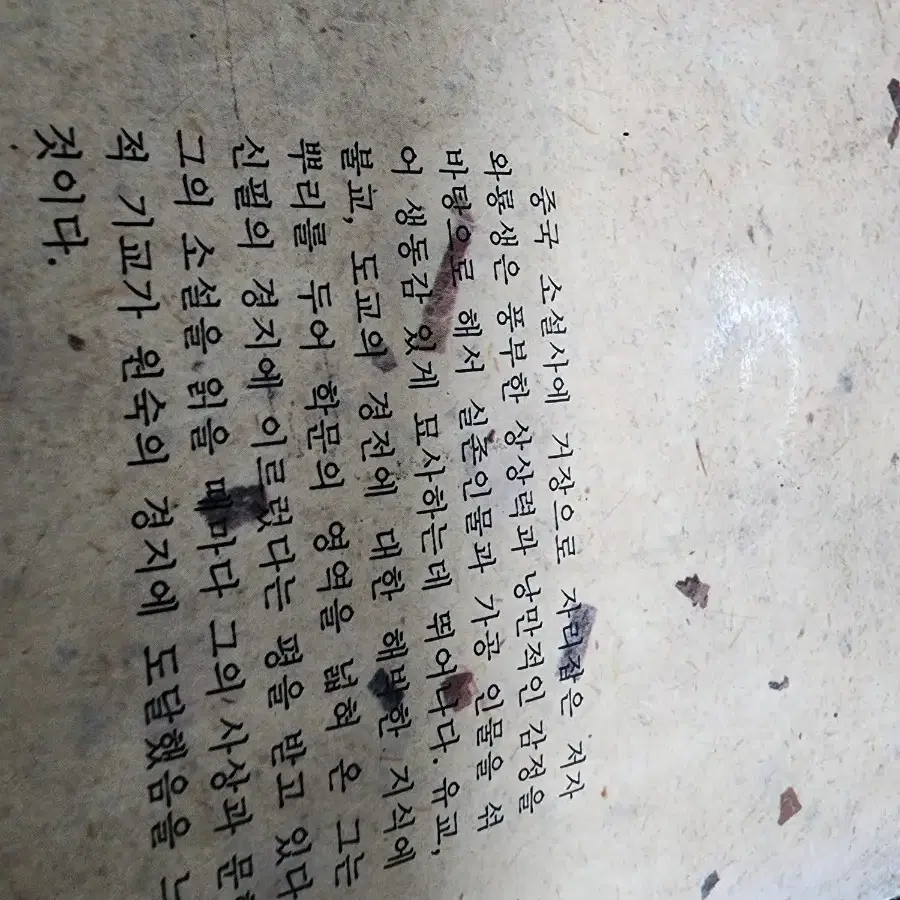 중국 소설사에 거장으로 자리잡은 저자
와룡생은 풍부한 상상력과 낭만적인 감정을
바탕으로 해서 실존인물과 가공 인물을 섞
어 생동감 있게 묘사하는데 뛰어나다. 유교,
불교, 도교의 경전에 대한 해박한 지식에
뿌리를 두어 학문의 영역을 넓혀 온 그는
신필의 경지에 이르렀다는 평을 받고 있다
그의 소설을 읽을 때마다 그의 사상과
적 기교가 원숙의 경지에 도달했음을
것이다.